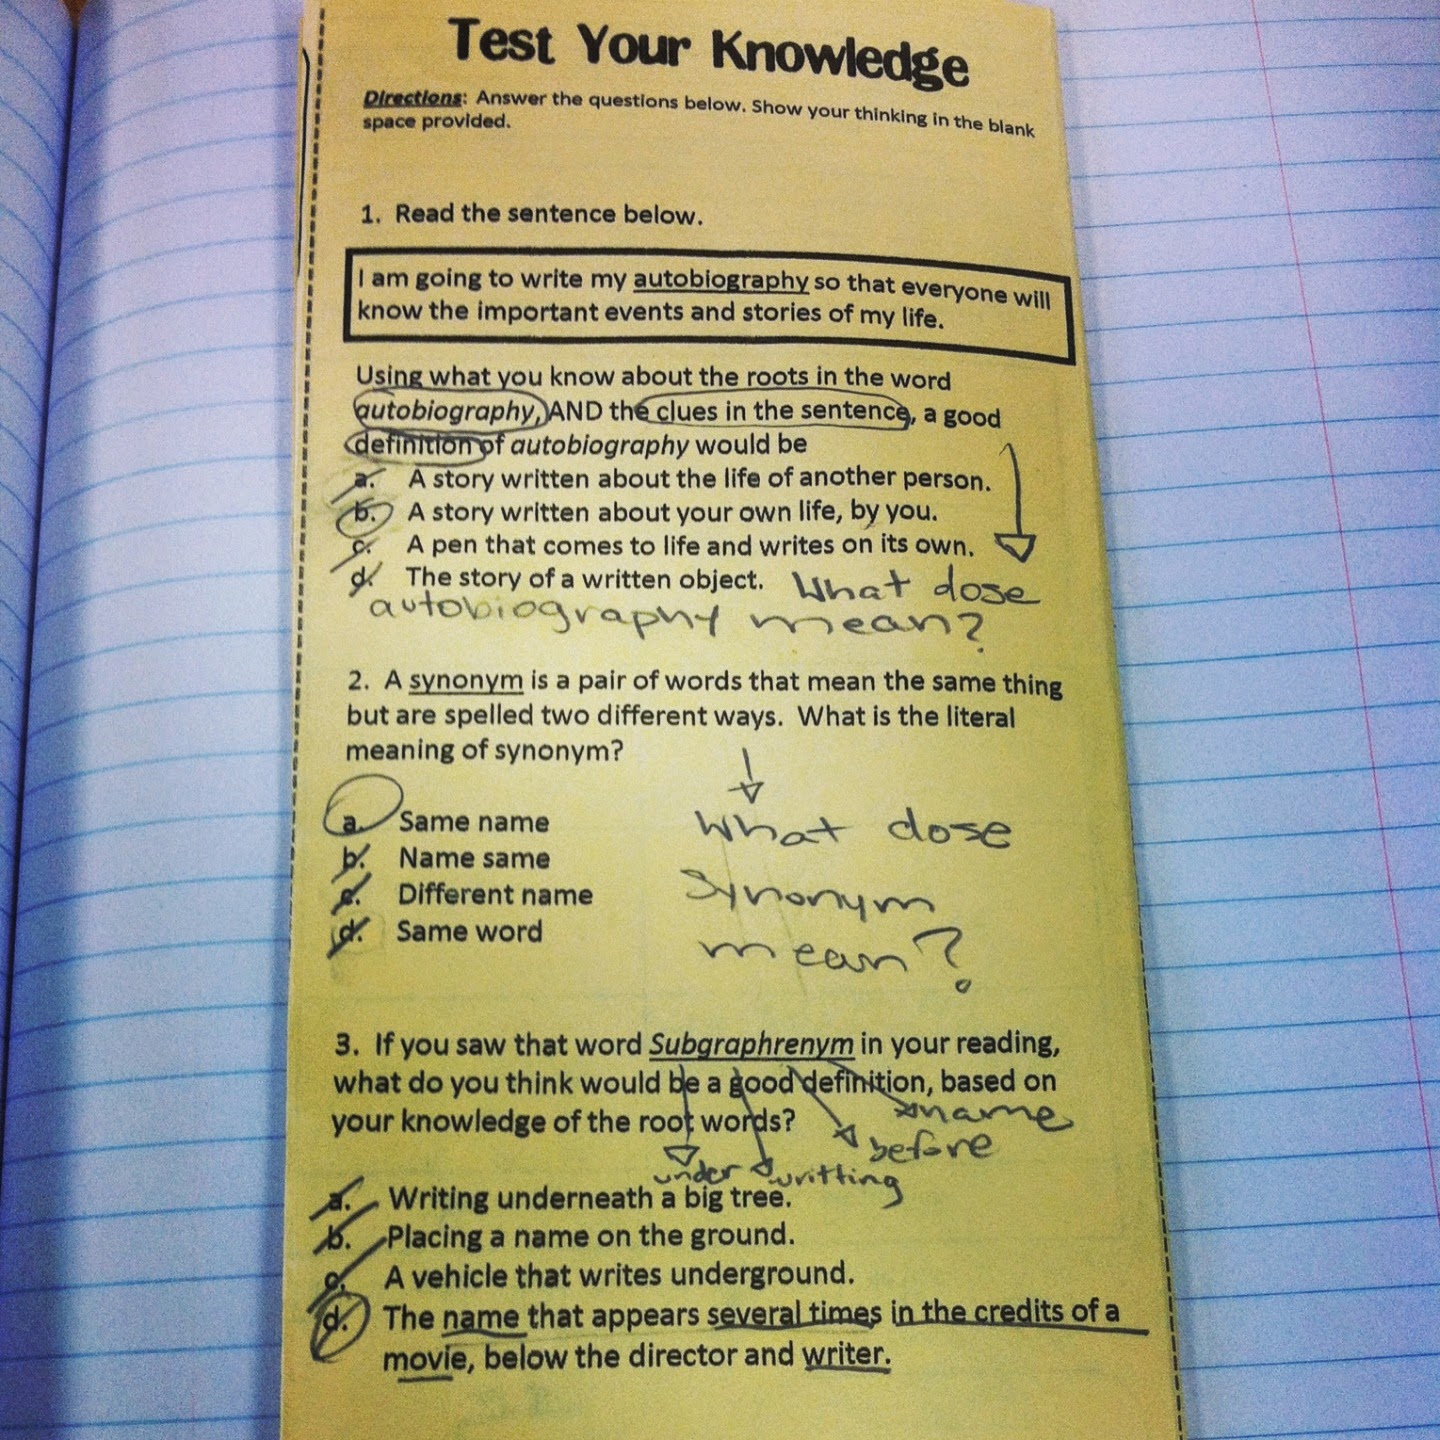 Test Your Knowledge
Directions: Answer the questions below. Show your thinking in the blank
space provided.
1. Read the sentence below.
I am going to write my autobiography so that everyone will
know the important events and stories of my life.
Using what you know about the roots in the word
autobiography, AND the clues in the sentence, a good
definition of autobiography would be
a. A story written about the life of another person.
b. A story written about your own life, by you.
c. A pen that comes to life and writes on its own.
d. The story of a written object. What dose
autobiography mean?
2. A synonym is a pair of words that mean the same thing
but are spelled two different ways. What is the literal
meaning of synonym?
a. Same name
What dose
b. Name same
c. Different name
Synonym
d. Same word
mean?
3. If you saw that word Subgraphrenym in your reading,
what do you think would be a good definition, based on
your knowledge of the root words?
name
before
under writting
a. Writing underneath a big tree.
b. Placing a name on the ground.
c. A vehicle that writes underground.
d. The name that appears several times in the credits of a
movie, below the director and writer.